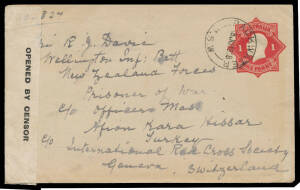 824
OPENED BY CENSOR
R. J. Davis
Wellington Inf: Batt
New Zealand Forces
Prisoner of War
c/o Officers Mess
Afion Kara Hissar
Turkey
c/o International Red Cross Society
Geneva
Switzerland
1
1